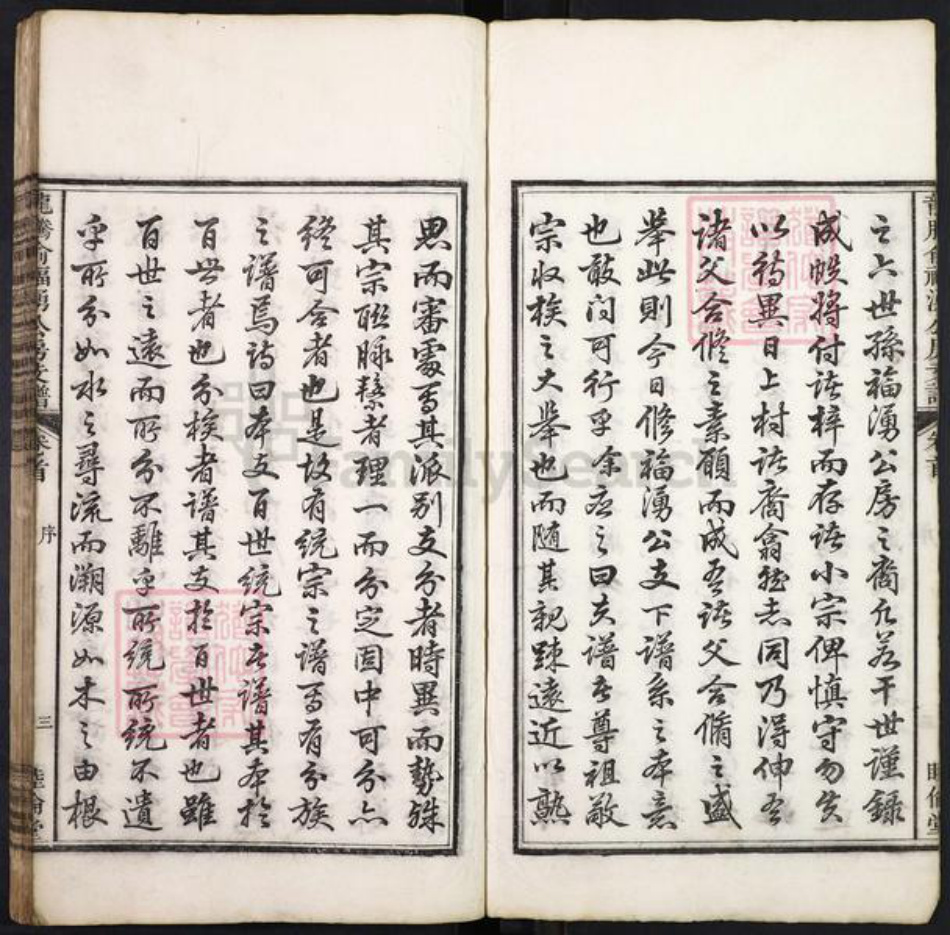 之六世孫福湧公房之裔凡若干世謹錄
成帙將付諸梓而存諸小宗俾慎守勿失
以待異日上村諸裔翕然志同乃得伸吾
諸父合修之素願而成吾諸父合脩之盛
舉此則今日修福湧公支下譜系之本意
也敢问可行乎余应之曰夫譜者尊祖敬
宗收族之大舉也而随其親踈遠近以熟
思而審處焉其派别支分者時異而勢殊
其宗联脉繫者理一而分定固中可分亦
終可合者也是故有統宗之譜焉有分族
之譜焉詩曰本支百世統宗者譜其本於
百世者也分族者譜其支於百世者也雖
百世之遠而所分不離乎所統所統不遺
乎所分如水之尋流而溯源如木之由根
龍騰俞福湧公房支譜
卷首
序
三
睦倫堂
FamilySearch